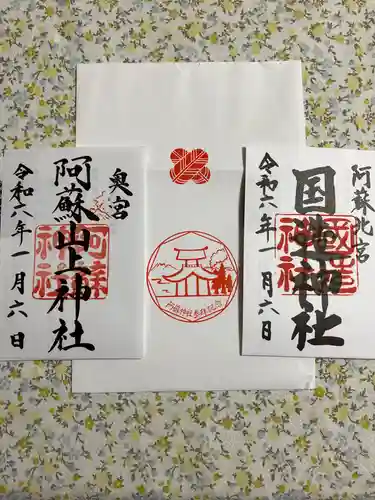 奥宮
阿蘇山上神社
令和六年一月六日
阿蘇神社参拝記念
阿蘇北宮
国造神社
令和六年一月六日